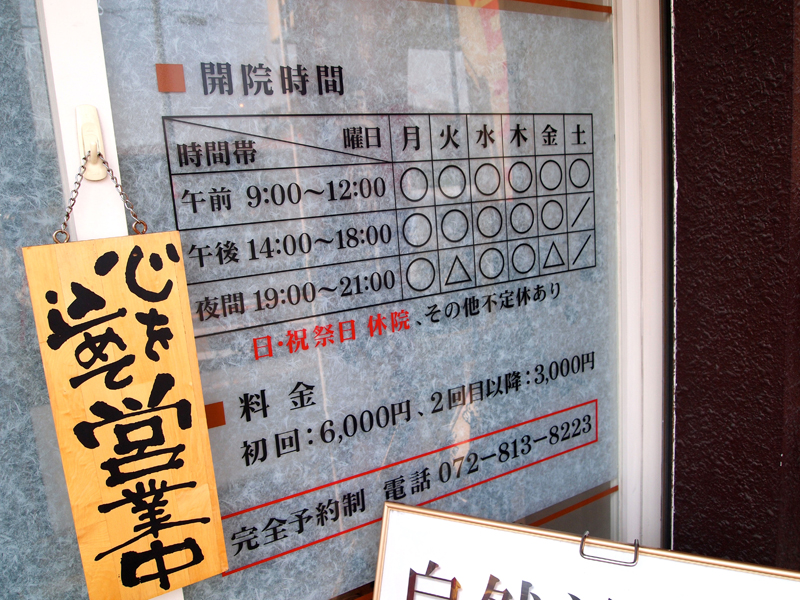 開院時間
時間帯 曜日 月 火 水 木 金 土
午前 9:00〜12:00 ○ ○ ○ ○ ○ ○
午後 14:00〜18:00 ○ ○ ○ ○ ○ ／
夜間 19:00〜21:00 ○ △ ○ ○ △ ／
日・祝祭日 休院、その他不定休あり
料金
初回：6,000円、2回目以降：3,000円
完全予約制 電話 072-813-8223
心を
込めて
営業中